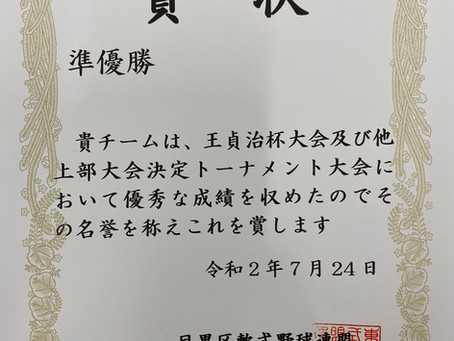 賞 状
準優勝
貴チームは、王貞治杯大会及び他
上部大会決定トーナメント大会に
おいて優秀な成績を収めたのでそ
の名誉を称えこれを賞します
令和2年7月24日
目黒区軟式野球連盟